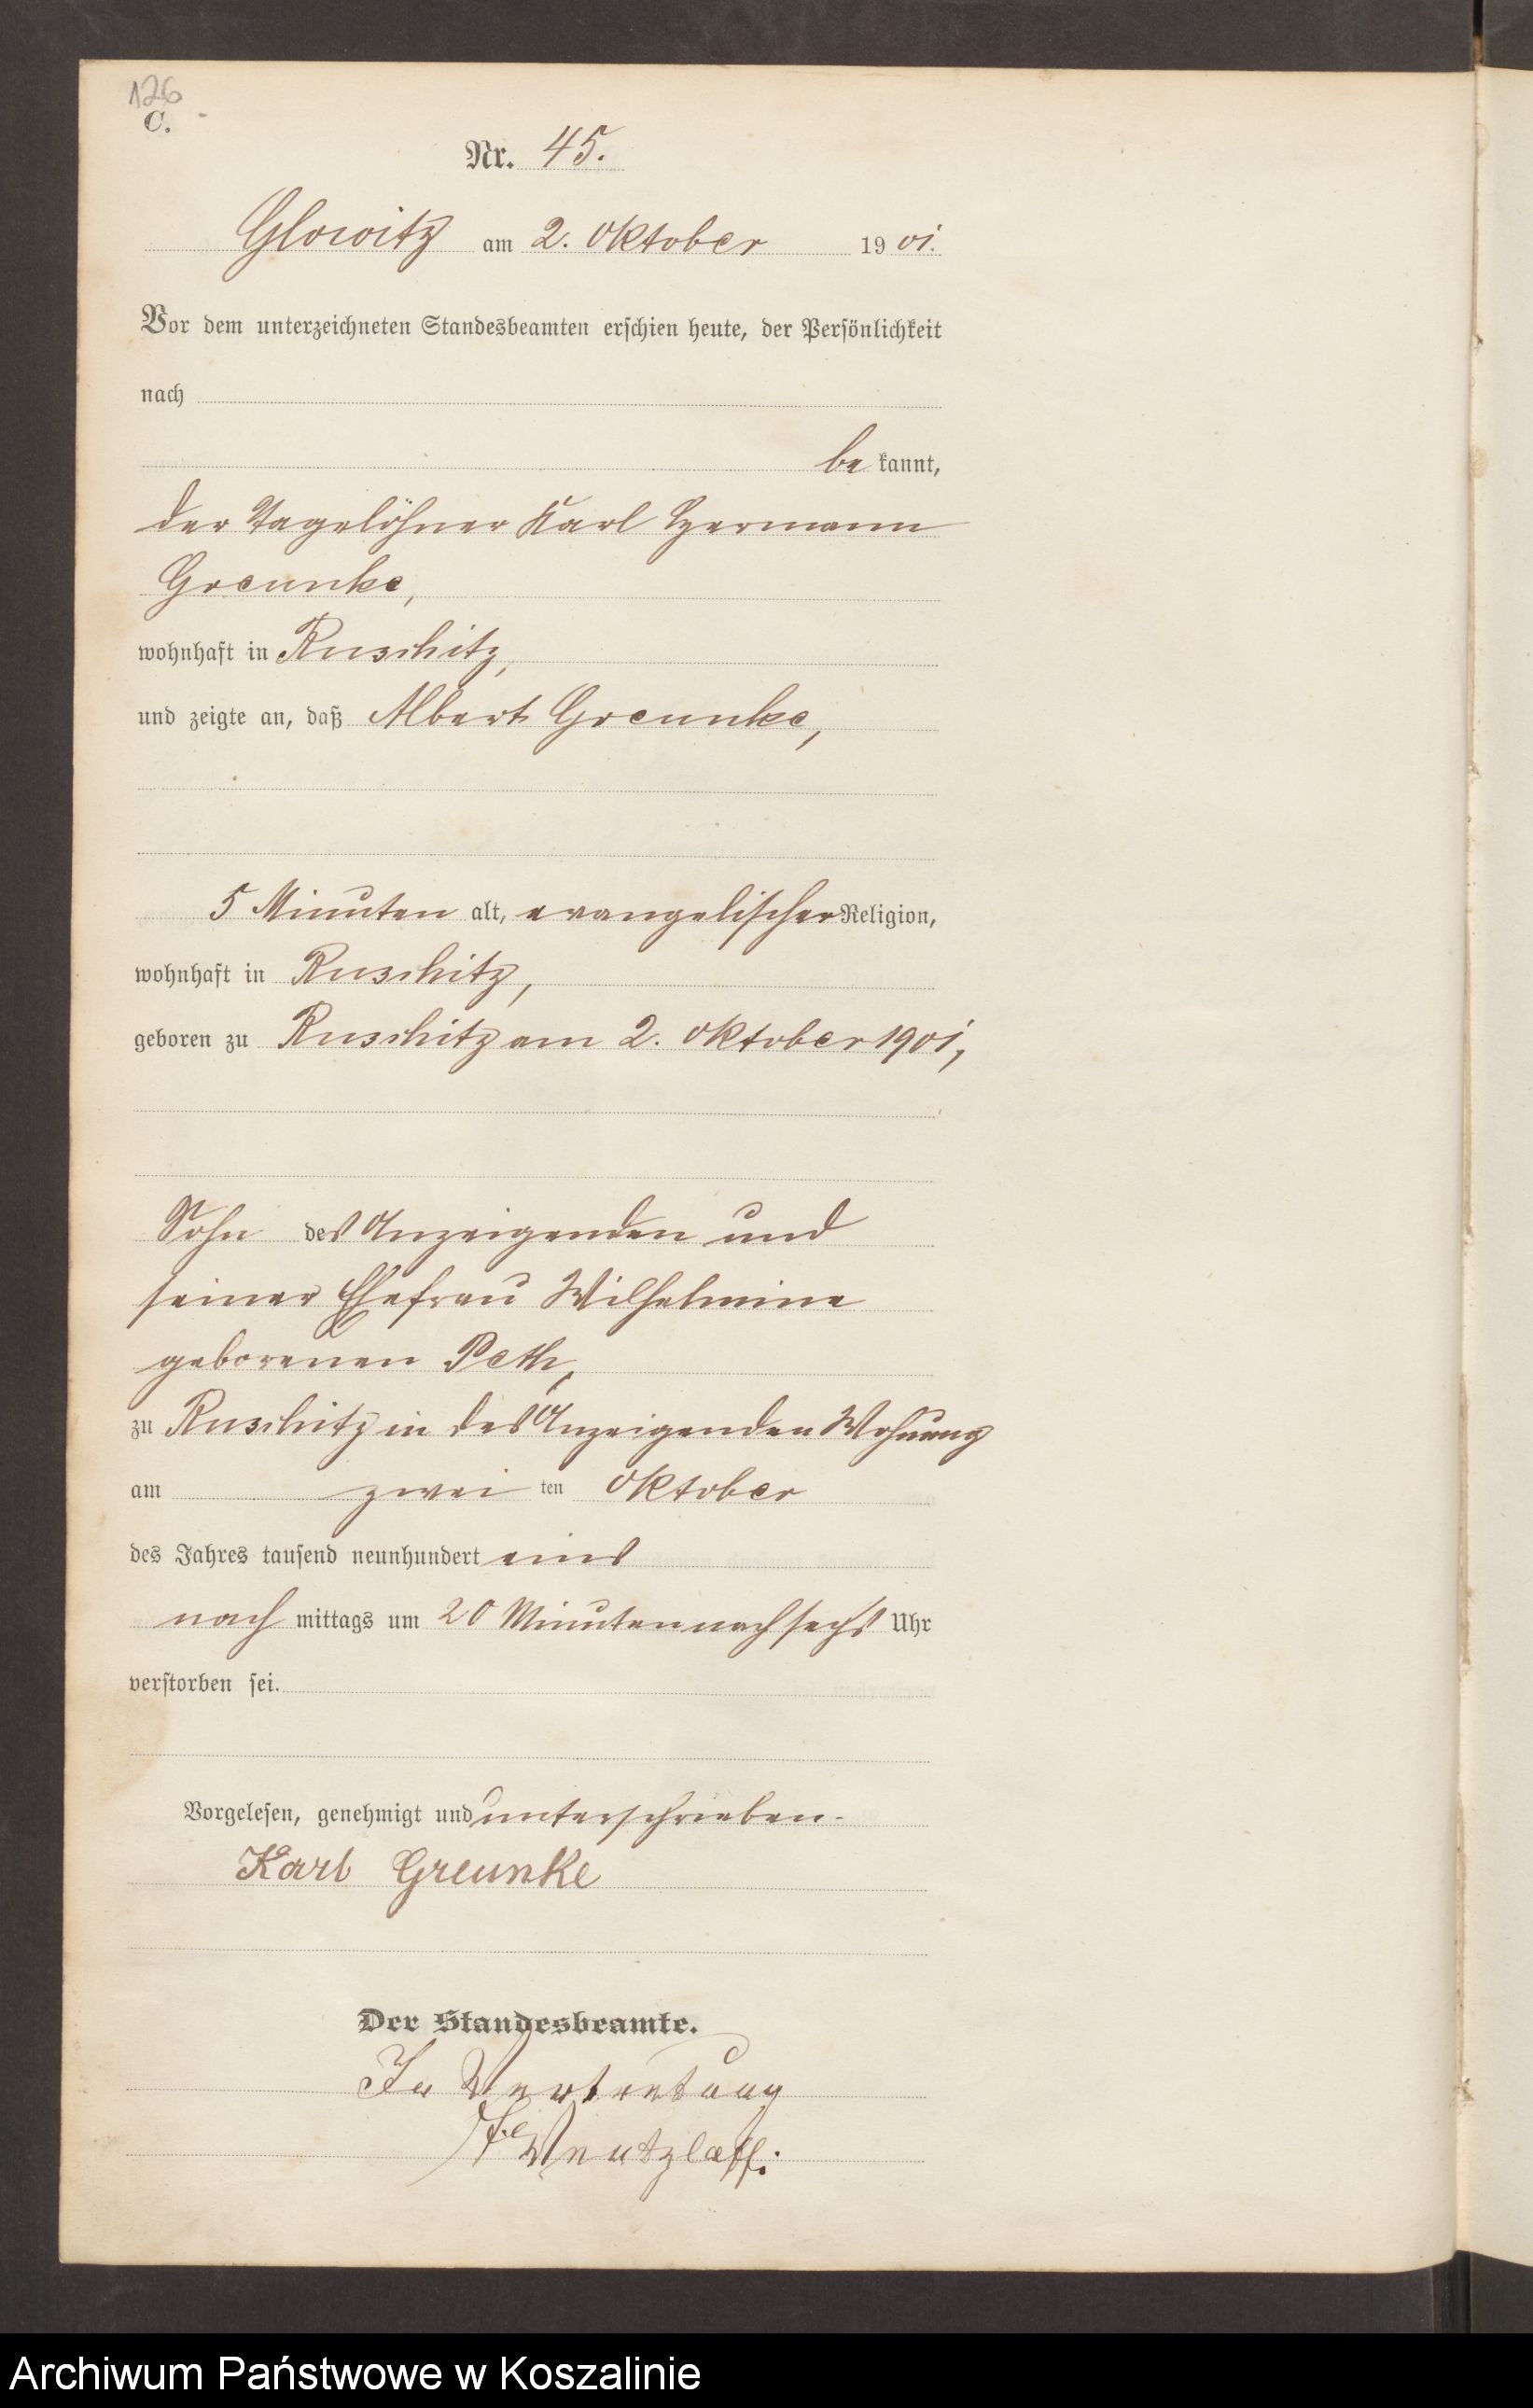 126
C.
Nr. 45.
Glowitz am 2. Oktober 1901.
Vor dem unterzeichneten Standesbeamten erschien heute, der Persönlichkeit
nach
be kannt,
der Tagelöhner Karl Hermann
Greunke,
wohnhaft in Ruschitz,
und zeigte an, daß Albert Greunke,
5 Minuten alt, evangelischer Religion,
wohnhaft in Ruschitz,
geboren zu Ruschitz am 2. Oktober 1901,
Sohn des Anzeigenden und
seiner Ehefrau Wilhelmine
geborenen Peth,
zu Ruschitz in des Anzeigenden Wohnung
am zwei ten Oktober
des Jahres tausend neunhundert eins
nach mittags um 20 Minuten nach sechs Uhr
verstorben sei.
Vorgelesen, genehmigt und unterschrieben.
Karl Greunke
Der Standesbeamte.
In Vertretung
Wentzlaff.
Archiwum Państwowe w Koszalinie